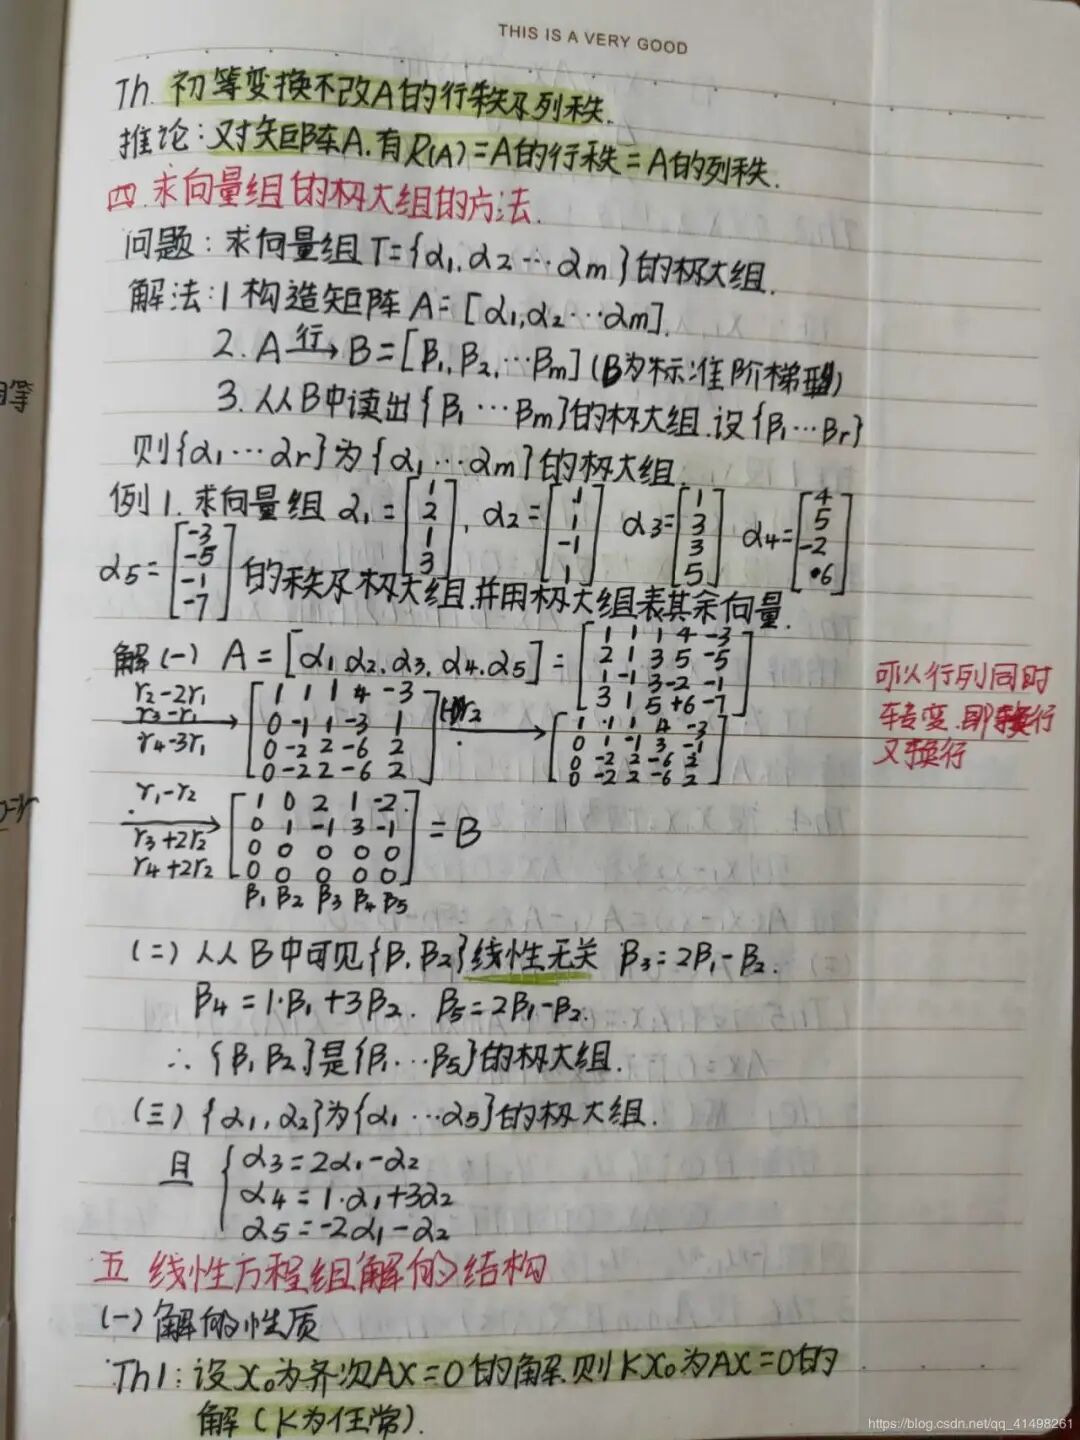 THIS IS A VERY GOOD
Th. 初等变换不改A的行秩及列秩.
推论:对矩阵A.有R(A)=A的行秩=A的列秩.
四.求向量组的极大组的方法.
问题:求向量组T={α₁,α₂…αm}的极大组.
解法:1 构造矩阵A=[α₁,α₂…αm].
2. A 行→ B=[β₁,β₂,…βm](B为标准阶梯型)
3. 从B中读出{β₁…βm}的极大组.设{β₁…βr}
则{α₁…αr}为{α₁…αm}的极大组.
例1.求向量组 α₁=[1 2 1 3], α₂=[1 1 -1 1] α₃=[1 3 3 5] α₄=[4 5 -2 6]
α₅=[-3 -5 -1 -7] 的秩及极大组.并用极大组表其余向量.
解(一) A=[α₁,α₂,α₃,α₄,α₅]=
1 1 1 4 -3
2 1 3 5 -5
1 -1 3 -2 -1
3 1 5 +6 -7
r₂-2r₁
r₃-r₁
r₄-3r₁
1 1 1 4 -3
0 -1 1 -3 1
0 -2 2 -6 2
0 -2 2 -6 2
(-1)r₂
1 1 1 4 -3
0 1 -1 3 -1
0 -2 2 -6 2
0 -2 2 -6 2
可以行列同时
转变.即换行
又换行
r₁-r₂
r₃+2r₂
r₄+2r₂
1 0 2 1 -2
0 1 -1 3 -1
0 0 0 0 0
0 0 0 0 0
=B
β₁ β₂ β₃ β₄ β₅
(二)从B中可见{β₁β₂}线性无关 β₃=2β₁-β₂.
β₄=1·β₁+3β₂. β₅=2β₁-β₂.
∴{β₁β₂}是{β₁…β₅}的极大组.
(三){α₁,α₂}为{α₁…α₅}的极大组.
且 α₃=2α₁-α₂
α₄=1·α₁+3α₂
α₅=-2α₁-α₂
五 线性方程组解的结构
(一)解的性质
Th1:设X₀为齐次AX=0的解.则KX₀为AX=0的
解(K为任常).
https://blog.csdn.net/qq_41498261